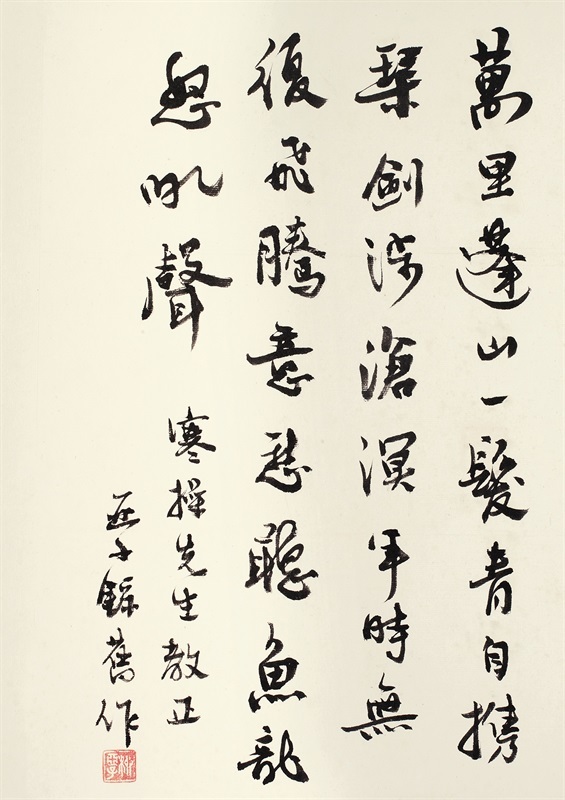 萬里蓬山一髮青自携
琹劍涉滄溟年時無
復飛騰意愁聽魚龍
怒吼聲
寒操先生教正
亞子錄舊作